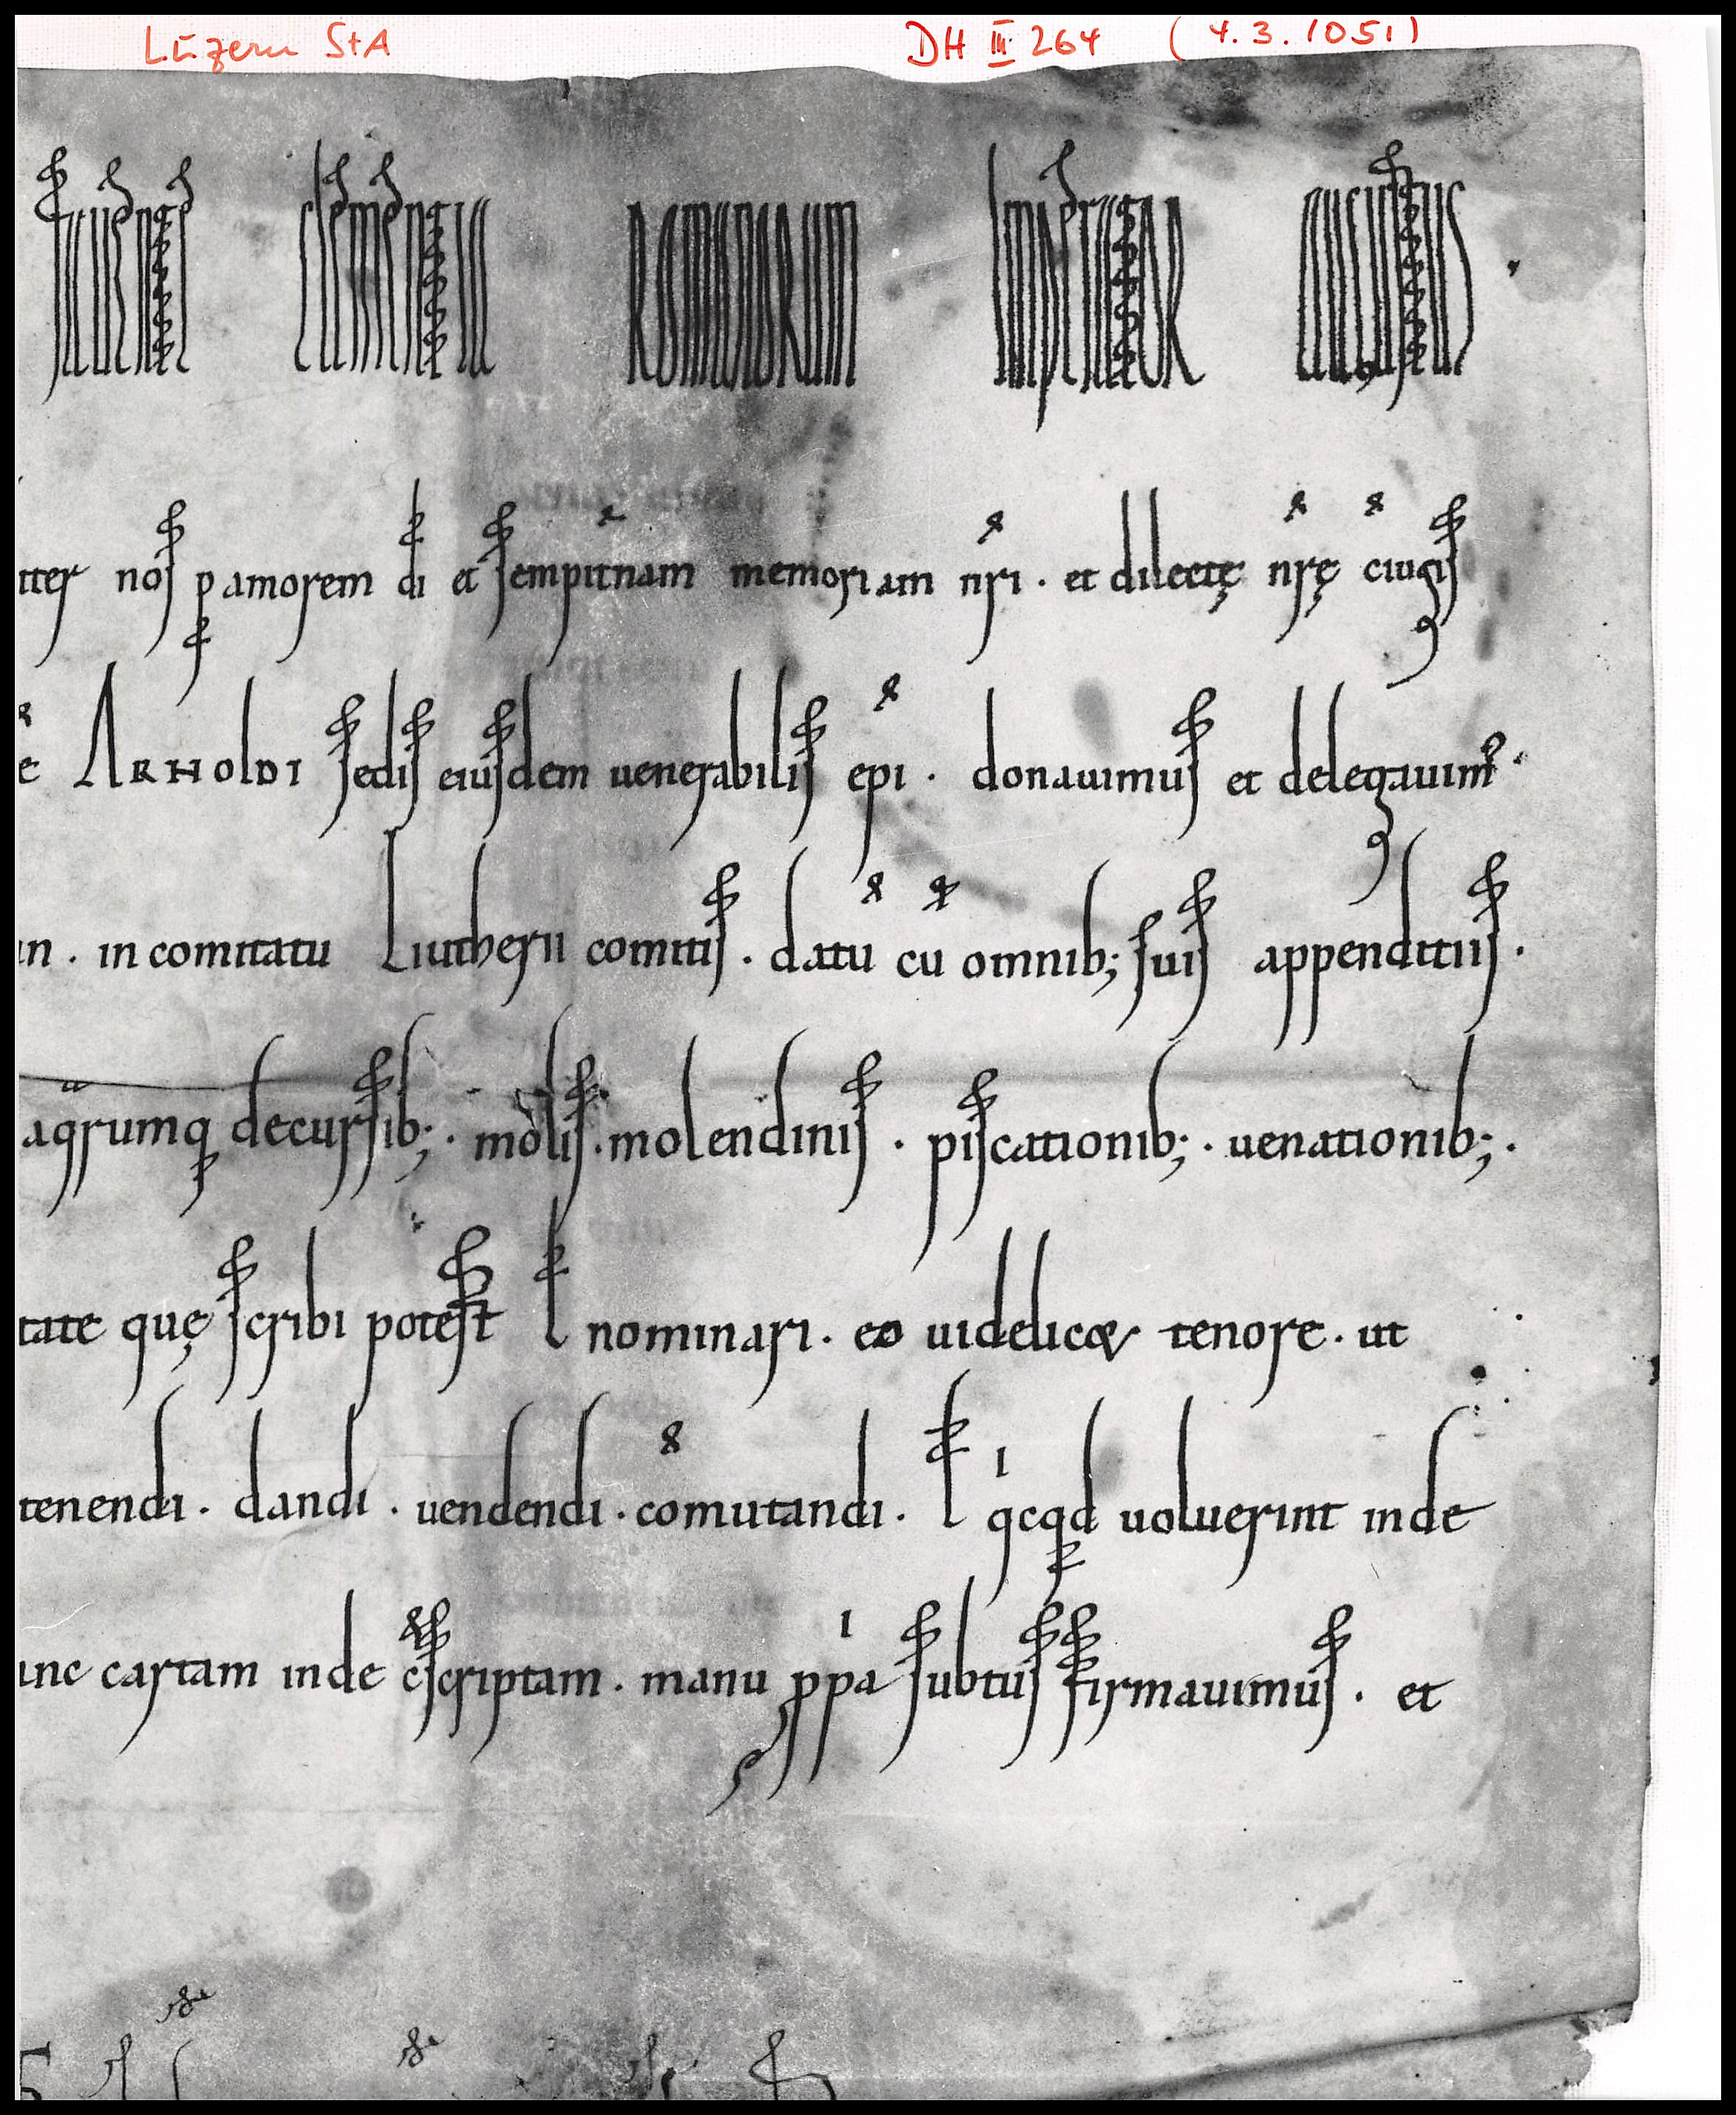 Luzern StA DH III 264 (4.3.1051)
fauente clementia Romanorum Imperator augustus .
nos p amorem di et sempitnam memoriam nri . et dilectę nrę ciugis
ARNOLDI sedis eiusdem uenerabilis epi . donauimus et delegauim⁹ .
in comitatu Liutherii comitis . datu cu omnib; suis appenditiis .
aqrumq decursib; . molis . molendinis . piscationib; . uenationib; .
tate quę scribi potest l nominari . eo uidelicet tenore . ut
tenendi . dandi . uendendi . comutandi . l qcqd uoluerint inde
inc cartam inde cscriptam . manu ppa subtus firmauimus . et